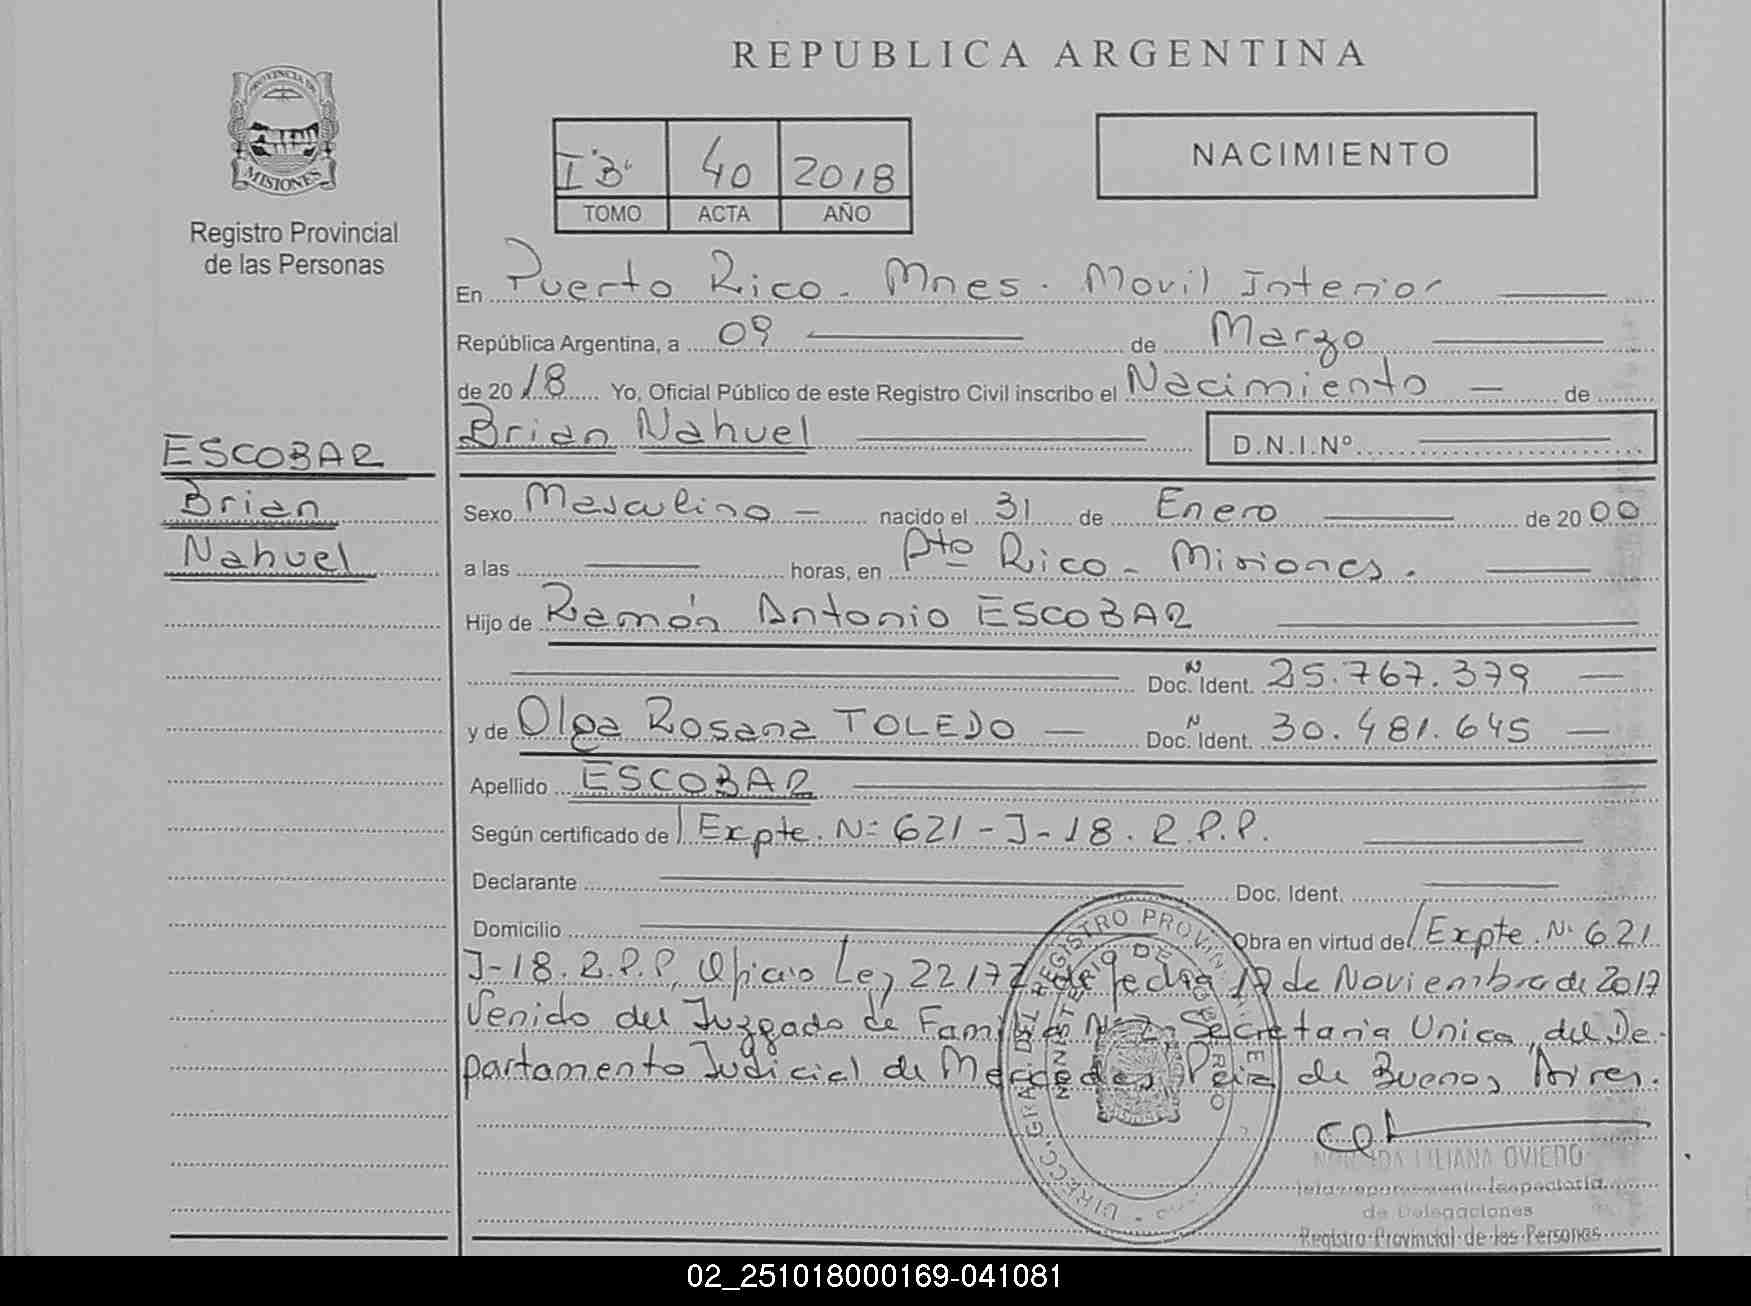 REPUBLICA ARGENTINA
PROVINCIA DE
MISIONES
Registro Provincial
de las Personas
I "B" 40 2018
TOMO ACTA AÑO
NACIMIENTO
En Puerto Rico - Mnes - Movil Interior
República Argentina, a 09 de Marzo
de 2018 Yo, Oficial Público de este Registro Civil inscribo el Nacimiento — de
Brian Nahuel D.N.I.Nº
ESCOBAR
Brian
Nahuel
Sexo Masculino — nacido el 31 de Enero de 2000
a las horas, en Pto Rico - Misiones.
Hijo de Ramón Antonio ESCOBAR
Doc. N Ident. 25.767.379
y de Olga Rosana TOLEDO — Doc. N Ident. 30.481.645
Apellido ESCOBAR
Según certificado de Expte. Nº 621-J-18. R.P.P.
Declarante Doc. Ident.
Domicilio Obra en virtud de Expte. Nº 621
J-18. R.P.P, Oficio Ley 22172 de fecha 17 de Noviembre de 2017
Venido del Juzgado de Familia Nº 2, Secretaria Unica, del De-
partamento Judicial de Mercedes, Pcia de Buenos Aires.
DIRECC. GRAL. DEL REGISTRO PROVINCIAL DE
MINISTERIO DE GOBIERNO
LILIANA OVIEDO
Inspectoria
de Delegaciones
Registro Provincial de las Personas
02_251018000169-041081